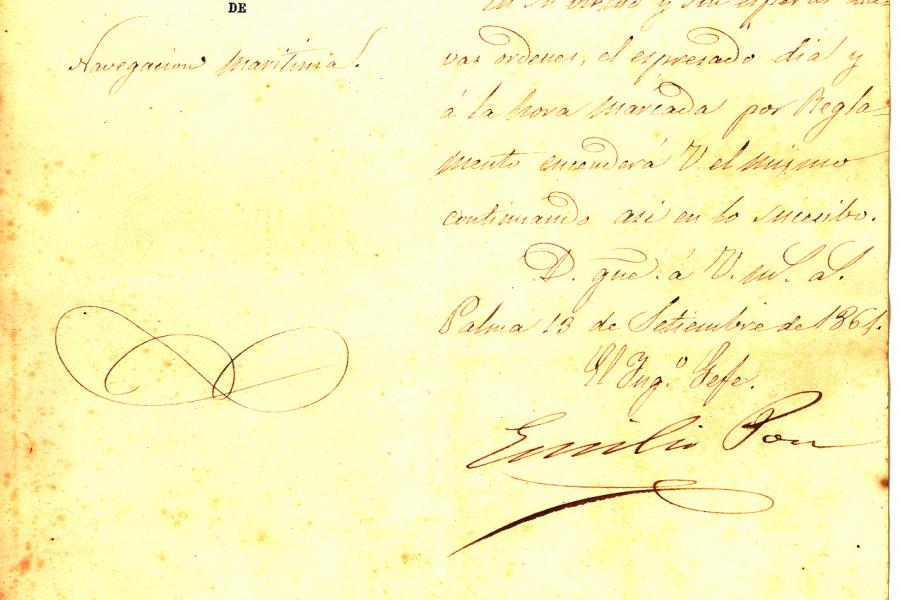 DE
Navegacion Maritima.
En su virtud y sin esperar nue-
vas ordenes, el espresado dia y
á la hora marcada por Regla-
mento encenderá V. el mismo
continuando asi en lo sucesibo.
D. gue. á V. m.s a.s
Palma 13 de Setiembre de 1861.
El Ing.º Gefe.
Emilio Pou